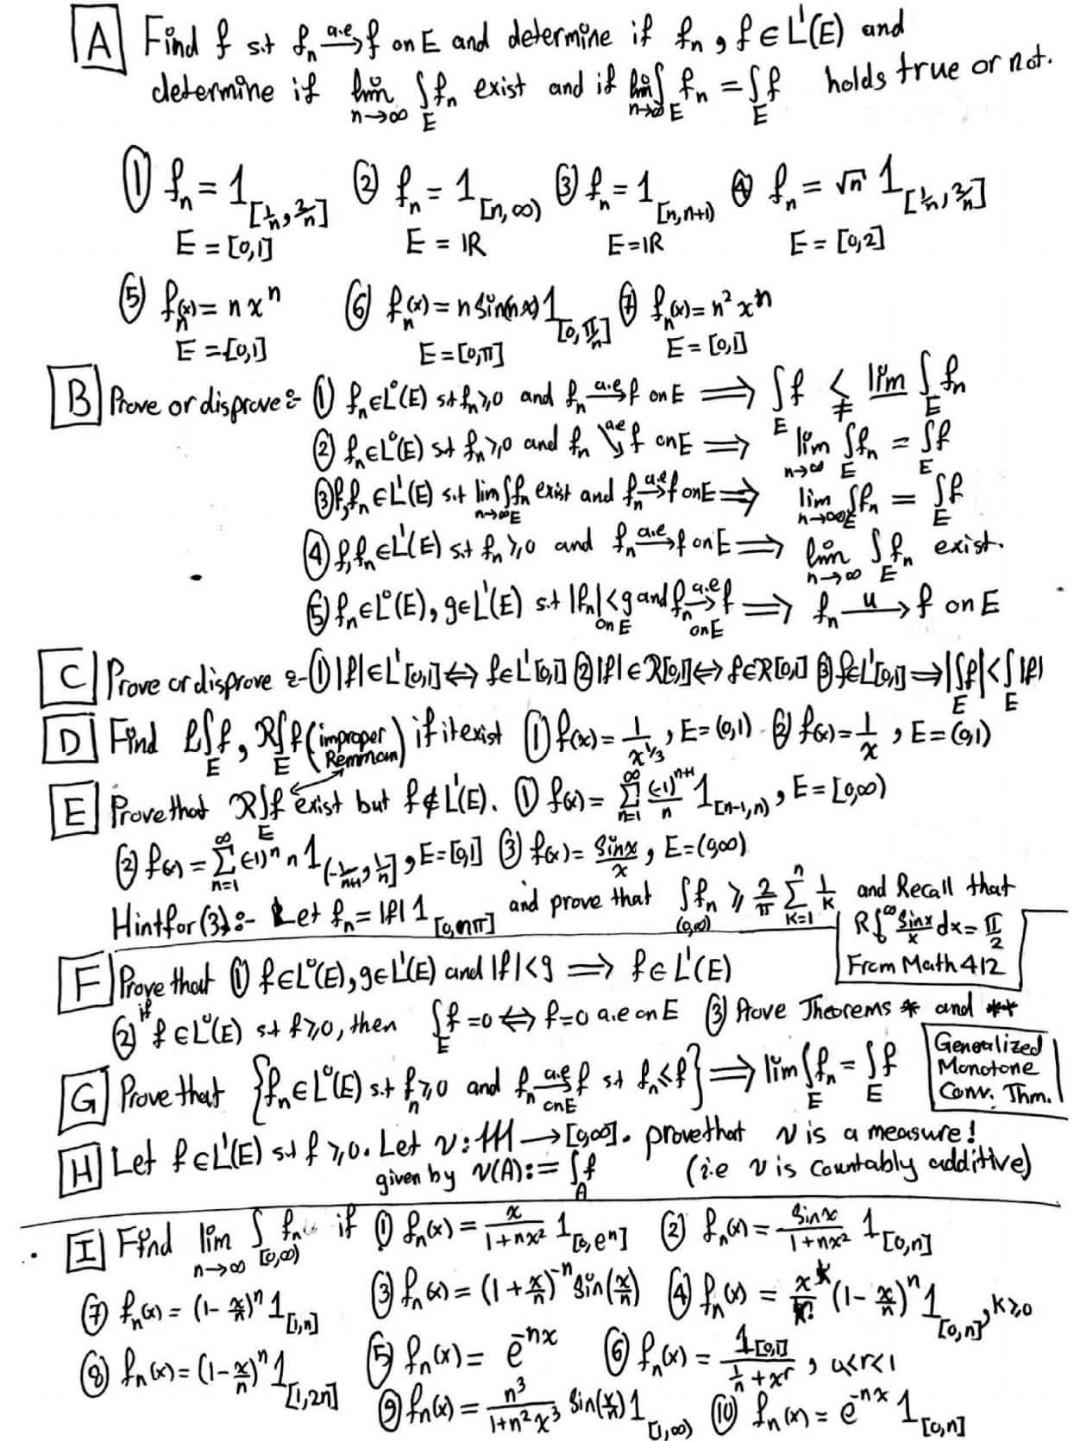 A Find f s.t f_n →^{a.e} f on E and determine if f_n, f ∈ L'(E) and
determine if lim_{n→∞} ∫_E f_n exist and if lim_{n→∞} ∫_E f_n = ∫_E f holds true or not.
① f_n = 1_{[1/n, 2/n]} ② f_n = 1_{[n,∞)} ③ f_n = 1_{[n,n+1)} ④ f_n = √n 1_{[1/n, 2/n]}
E = [0,1] E = ℝ E = ℝ E = [0,2]
⑤ f_n(x) = n x^n ⑥ f_n(x) = n sin(nx) 1_{[0,π/n]} ⑦ f_n(x) = n² x^n
E = [0,1] E = [0,π] E = [0,1]
B Prove or disprove :- ① f_n ∈ L°(E) s.t f_n ≥ 0 and f_n →^{a.e} f on E ⟹ ∫_E f ≨ lim ∫_E f_n
② f_n ∈ L°(E) s.t f_n ≥ 0 and f_n ↘^{a.e} f on E ⟹ lim_{n→∞} ∫_E f_n = ∫_E f
③ f, f_n ∈ L'(E) s.t lim_{n→∞} ∫_E f_n exist and f_n →^{a.e} f on E ⟹ lim_{n→∞} ∫_E f_n = ∫_E f
④ f, f_n ∈ L'(E) s.t f_n ≥ 0 and f_n →^{a.e} f on E ⟹ lim_{n→∞} ∫_E f_n exist.
⑤ f_n ∈ L°(E), g ∈ L'(E) s.t |f_n| < g on E and f_n →^{a.e} f on E ⟹ f_n →^{u} f on E
C Prove or disprove :- ① |f| ∈ L'[0,1] ⟺ f ∈ L'[0,1] ② |f| ∈ R[0,1] ⟺ f ∈ R[0,1] ③ f ∈ L'[0,1] ⟹ |∫_E f| < ∫_E |f|
D Find L∫_E f, R∫_E f (improper Remman) if it exist ① f(x) = 1/x^{1/3}, E = (0,1) ② f(x) = 1/x, E = (0,1)
E Prove that R∫_E f exist but f ∉ L'(E). ① f(x) = Σ_{n=1}^{∞} (-1)^{n+1}/n 1_{[n-1,n)}, E = [0,∞)
② f(x) = Σ_{n=1}^{∞} (-1)^n n 1_{(1/(n+1), 1/n]}, E = [0,1] ③ f(x) = sin x / x, E = (0,∞)
Hint for (3) :- Let f_n = |f| 1_{[0,nπ]} and prove that ∫_{(0,∞)} f_n ≥ 2/π Σ_{k=1}^{n} 1/k and Recall that
R∫_0^∞ sin x / x dx = π/2
From Math 412
F Prove that ① f ∈ L°(E), g ∈ L'(E) and |f| < g ⟹ f ∈ L'(E)
② if f ∈ L°(E) s.t f ≥ 0, then ∫_E f = 0 ⟺ f = 0 a.e on E ③ Prove Theorems * and **
G Prove that {f_n ∈ L°(E) s.t f_n ≥ 0 and f_n →^{a.e} f on E s.t f_n ≤ f} ⟹ lim ∫_E f_n = ∫_E f
Generalized
Monotone
Conv. Thm.
H Let f ∈ L'(E) s.t f ≥ 0. Let ν : 𝓜 → [0,∞]. prove that ν is a measure!
given by ν(A) := ∫_A f (i.e ν is countably additive)
I Find lim_{n→∞} ∫_{[0,∞)} f_n if ① f_n(x) = x/(1+nx²) 1_{[0,e^n]} ② f_n(x) = sin x/(1+nx²) 1_{[0,n]}
⑦ f_n(x) = (1 - x/n)^n 1_{[1,n]} ③ f_n(x) = (1 + x/n)^{-n} sin(x/n) ④ f_n(x) = x^k/k! (1 - x/n)^n 1_{[0,n]}, k ≥ 0
⑧ f_n(x) = (1 - x/n)^n 1_{[1,2n]} ⑤ f_n(x) = e^{-nx} ⑥ f_n(x) = 1_{[0,1]}/(1/n + x^r), 0<r<1
⑨ f_n(x) = n³/(1+n²x³) sin(x/n) 1_{(1,∞)} ⑩ f_n(x) = e^{-nx} 1_{[0,n]}